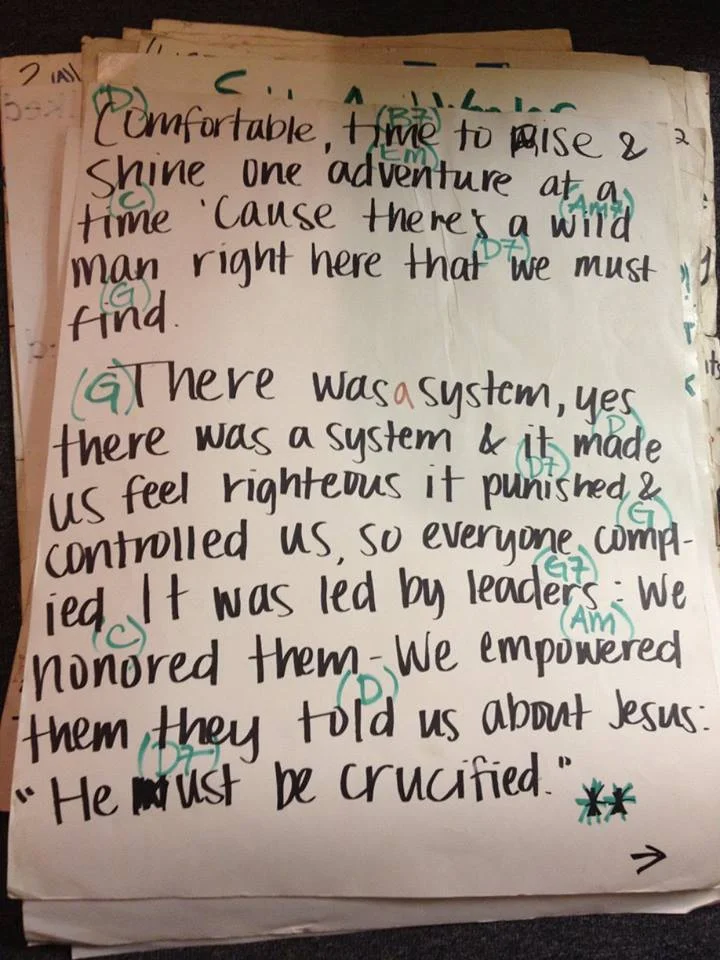 (D) (B7)
Comfortable, time to Rise & 2
(Em)
Shine one adventure at a
(C) (Am7)
time 'Cause there's a wild
(D7)
man right here that we must
(G)
find.
(G) There was a system, yes
(D)
there was a system & it made
(D7)
us feel righteous it punished &
(G)
controlled us, so everyone compl-
(G7)
ied. It was led by leaders: We
(C) (Am)
honored them - We empowered
(D)
them they told us about Jesus:
(D7)
"He must be crucified." **
→